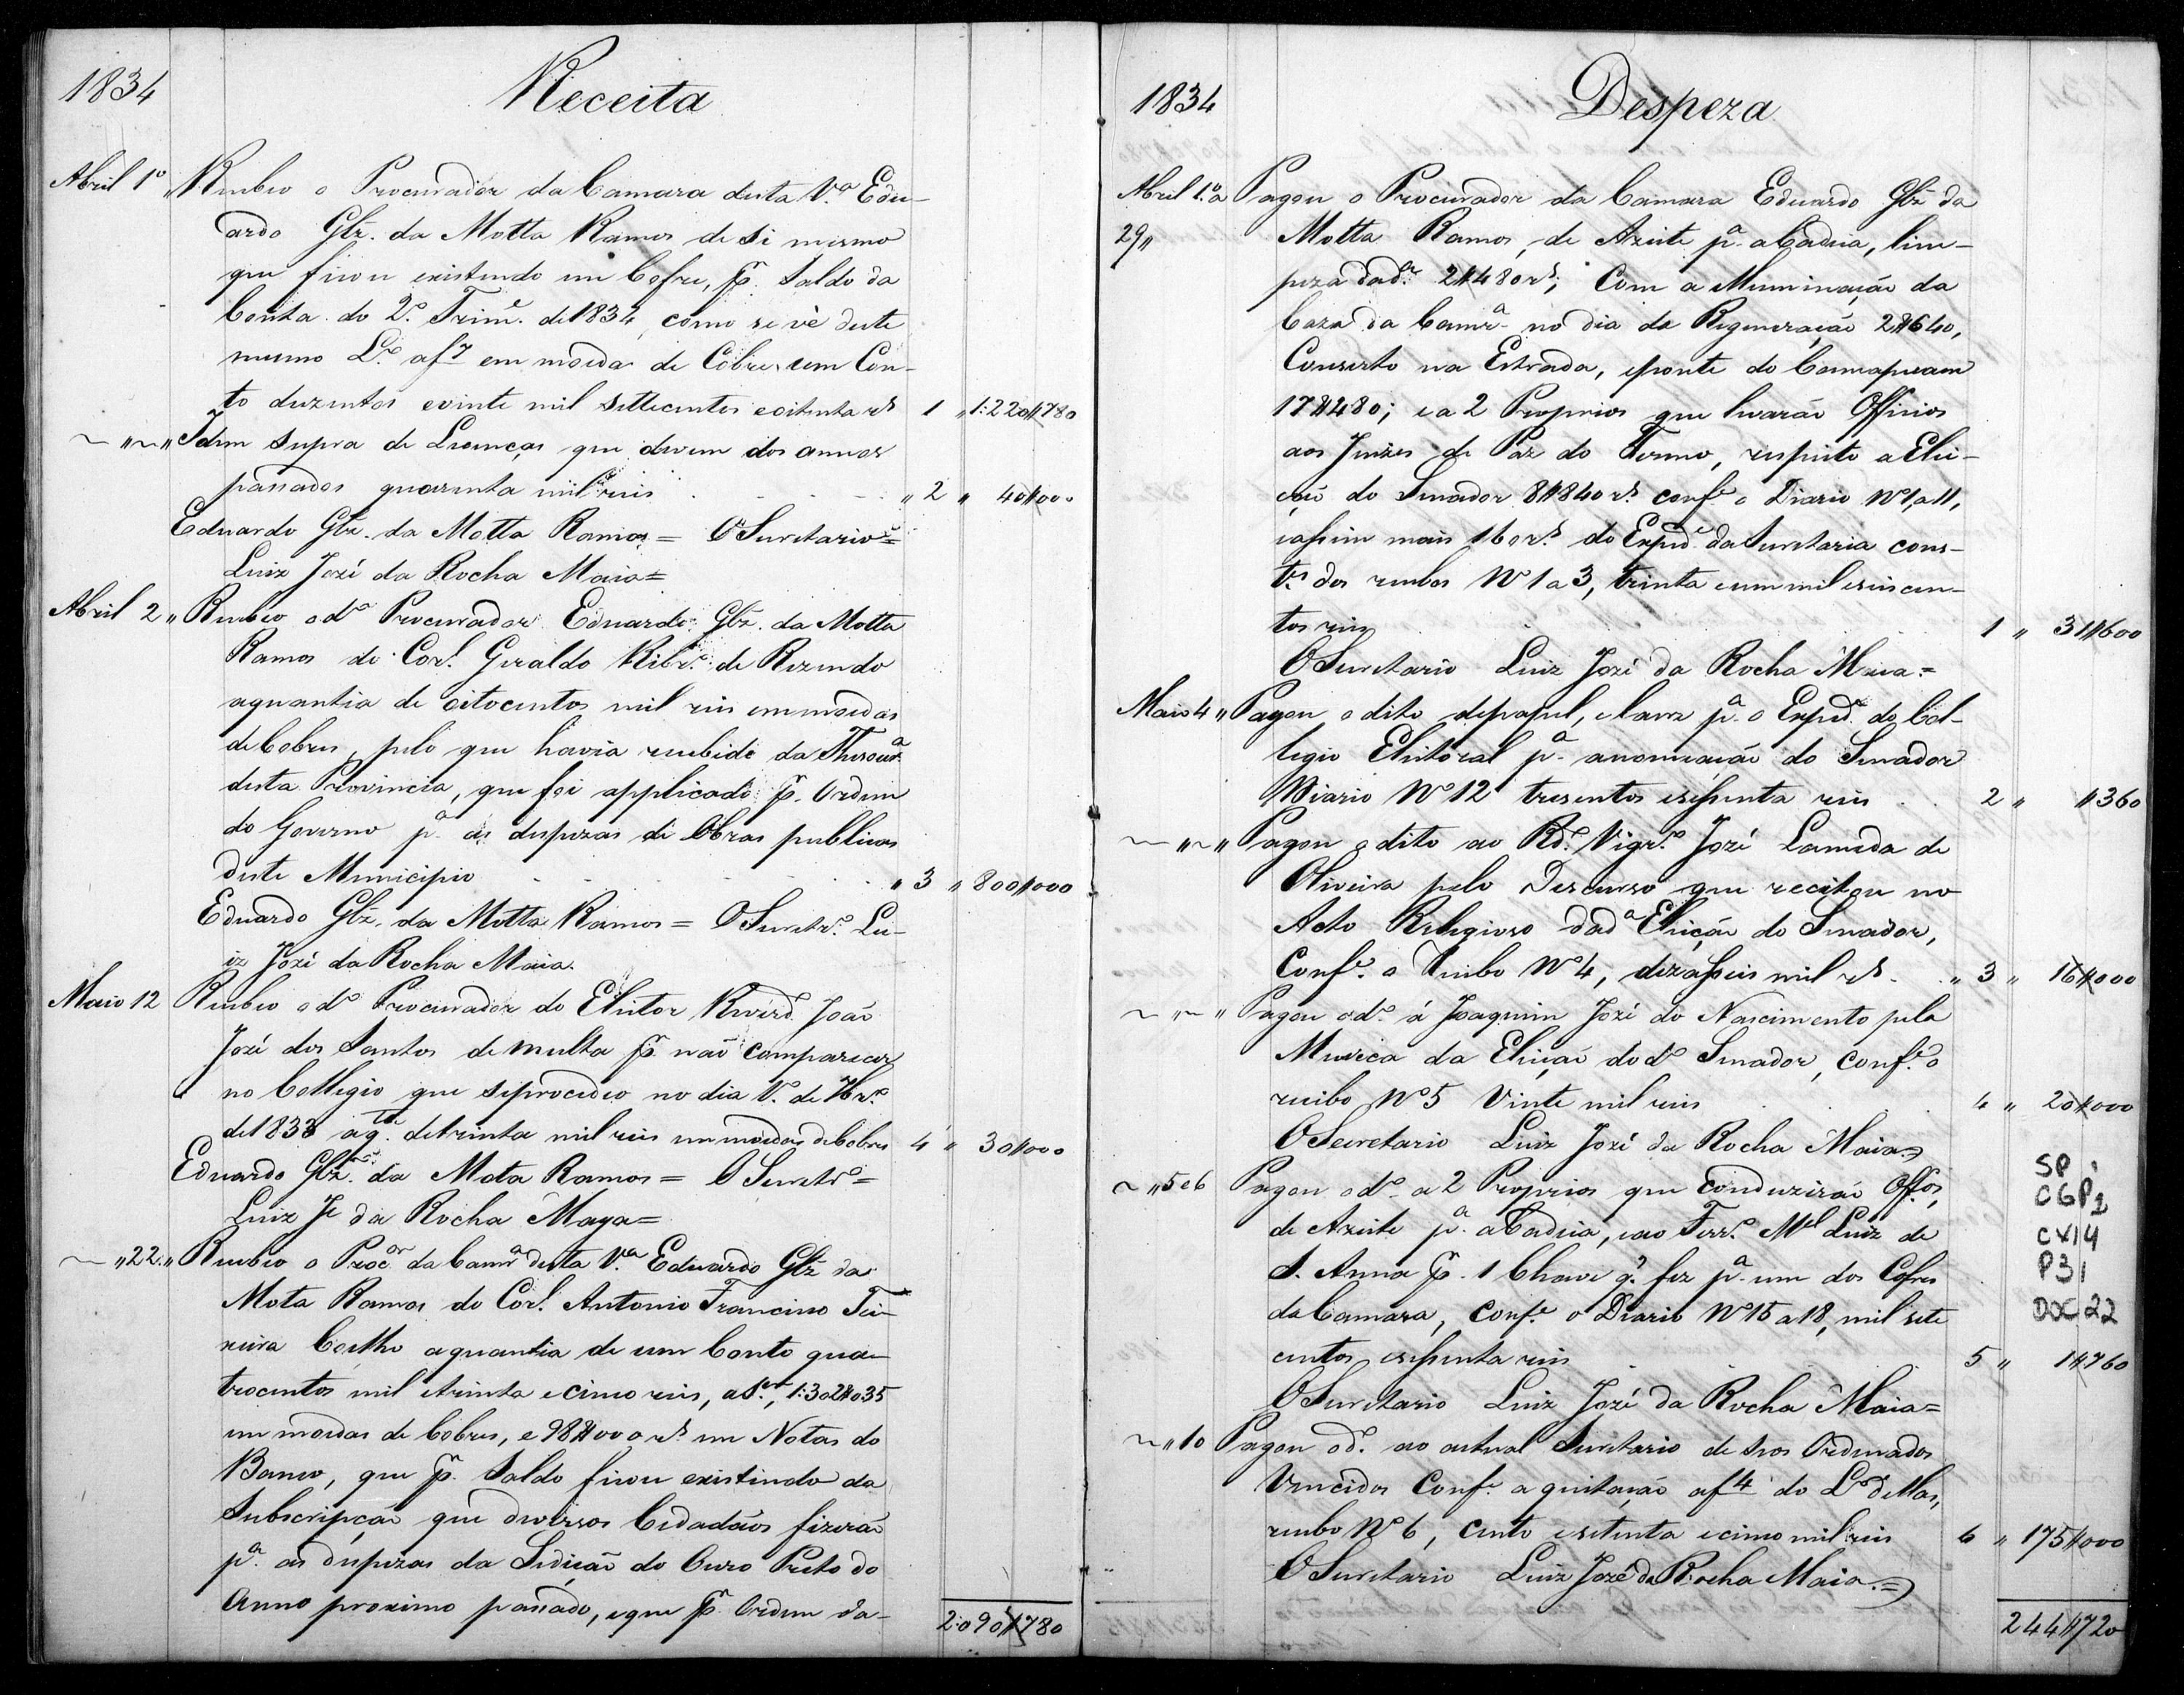 1834
Receita
Abril 1º „ Recebeo o Procurador da Camara desta V.ª Edu-
ardo Glz. da Motta Ramos de si mesmo
que ficou existindo em Cofre, p.r Saldo da
Conta do 2.º Trim.e de 1834, como se vè deste
mesmo L.º a f 7 em moeda de Cobre, um Con-
to duzentos e vinte mil settecentos e oitenta rs 1 „ 1:220$780
„ „ Idem supra de Licenças que devem dos annos
passados quarenta mil reis „ 2 „ 40$000
Eduardo Glz. da Motta Ramos = O Secretario =
Luiz Jozé da Rocha Maia =
Abril 2 „ Recebeo o d.º Procurador Eduardo Glz. da Motta
Ramos do Cor.l Geraldo Ribr.º de Rezende
a quantia de oitocentos mil reis em moedas
de Cobre, pelo que havia recebido da Thesour.a
desta Provincia, que foi applicado p.r Ordem
do Governo p.a as despezas de Obras publicas
deste Municipio „ 3 „ 800$000
Eduardo Glz. da Motta Ramos = O Secretr.º Lu-
iz Jozé da Rocha Maia.
Maio 12 Recebeo o d.º Procurador do Eleitor Rverd.º João
Jozé dos Santos de multa p.r não comparecer
no Collegio que se procedeo no dia 1.º de 7br.º
de 1833 a q.tia de trinta mil reis em moedas de Cobre 4 „ 30$000
Eduardo Glz. da Mota Ramos = O Secretr.º =
Luiz Je da Rocha Maya =
„ 22 „ Recebeo o Proc.or da Camr.a desta V.ª Eduardo Glz da
Mota Ramos do Cor.l Antonio Francisco Tei-
xeira Coelho a quantia de um Conto qua-
trocentos mil e trinta e cinco reis, a S.er, 1:302$035
em moedas de Cobre, e 98$000 rs em Notas do
Banco, que p.r Saldo ficou existindo da
Subscripção que diversos Cidadãos fizerão
p.a as despezas da Sedição do Ouro Preto do
Anno proximo passado, e que p.r Ordem da-
2:090$780
1834
Despeza
Abril 1.º a Pagou o Procurador da Camara Eduardo Glz da
29 „ Motta Ramos, de Azeite p.a a Cadeia, lim-
peza da d.a 2$480 rs; Com a Illuminação da
Caza da Camr.a no dia da Regeneração 2$640,
Conserto na Estrada, e ponte do Camapuam
17$480; e a 2 Proprios que levarão Officios
aos Juizes de Paz do Termo, respeito a Elei-
ção do Senador 8$840 rs conf.e o Diario Nº 1, a 11,
e assim mais 160 rs do Exped.e da Secretaria cons-
t.es dos recebos Nº 1 a 3, trinta e um mil e seiscen-
tos reis 1 „ 31$600
O Secretario Luiz Jozé da Rocha Maia =
Maio 4 „ Pagou o dito de papel, e lacre p.a o Exped.e do Col-
legio Eleitoral p.a a nomeação do Senador
Diario Nº 12 tresentos e sessenta reis 2 „ $360
„ „ Pagou o dito ao Rd.º Vigr.º Jozé Lameda de
Oliveira pelo Descurso que recitou no
Acto Religioso da d.a Eleição do Senador,
Conf.e o Recibo Nº 4, dezasseis mil rs „ 3 „ 16$000
„ „ Pagou o d.º á Joaquim Jozé do Nascimento pela
Musica da Eleição do d.º Senador, conf.e o
recibo Nº 5 Vinte mil reis 4 „ 20$000
O Secretario Luiz Jozé da Rocha Maia =
„ 5 e 6 Pagou o d.º a 2 Proprios que conduzirão Off.os,
de Azeite p.a a Cadeia, e ao Ferr.º M.el Luiz de
S. Anna p.r 1 Chave q.e fez p.a um dos Cofres
da Camara, conf.e o Diario Nº 15 a 18, mil sete
centos e sessenta reis 5 „ 1$760
O Secretario Luiz Jozé da Rocha Maia =
„ 10 Pagou o d.º ao actual Secretario de seos Ordenados
Vencidos Conf.e a quitação a f 4 do L.º dellas,
recebo Nº 6, cento e setenta e cinco mil reis 6 „ 175$000
O Secretario Luiz Jozé da Rocha Maia =
244$720
SP
CGP1
CX14
P31
DOC 22